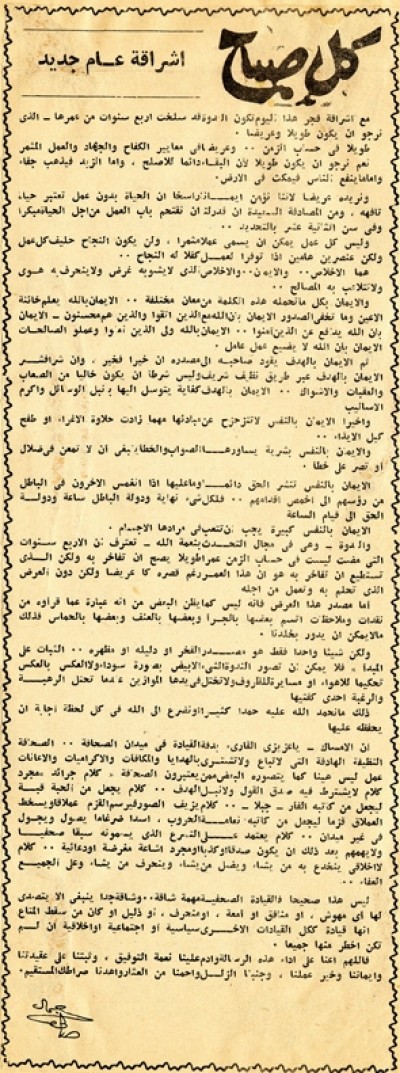 كل صباح
اشراقة عام جديد
مع اشراقة فجر هذا اليوم تكون الندوة قد سلخت اربع سنوات من عمرها - الذى
نرجو ان يكون طويلا وعريضا .
طويلا فى حساب الزمن .. وعريضا فى معايير الكفاح والجهاد والعمل المثمر
نعم نرجو ان يكون طويلا لأن البقاء دائما للاصلح ، واما الزبد فيذهب جفاء
واما ما ينفع الناس فيمكث فى الارض .
ونريده عريضا لاننا نؤمن ايمانا راسخا ان الحياة بدون عمل تعتبر حياة
تافهه ، ومن المصادفة السعيدة ان قدر لنا ان نقتحم باب العمل من اجل الحياة مبكرا
وفى سن الثانية عشر بالتحديد ..
وليس كل عمل يمكن ان يسمى عملا مثمرا ، ولن يكون النجاح حليف كل عمل
ولكن عنصرين هامين اذا توفرا لعمل كفلا له النجاح ..
هما الاخلاص .. والايمان .. والاخلاص الذى لا يشوبه غرض ولا ينحرف به هوى
ولا تتلاعب به المصالح ..
والايمان بكل ما تحمله هذه الكلمة من معان مختلفة .. الايمان بالله يعلم خائنة
الاعين وما تخفى الصدور الايمان بان الله مع الذين اتقوا والذين هم محسنون - الايمان
بان الله يدافع عن الذين امنوا .. الايمان بالله ولى الذين امنوا وعملو الصالحات
الايمان بان الله لا يضيع عمل عامل .
ثم الايمان بالهدف يقود صاحبه الى مصدره ان خيرا فخير ، وان شرا فشر
الايمان بالهدف عبر طريق نظيف شريف وليس شرطا ان يكون خاليا من الصعاب
والعقبات والاشواك .. الايمان بالهدف كغاية يتوسل اليها بانبل الوسائل واكرم
الاساليب
واخيرا الايمان بالنفس لا تتزحزح عن مبادئها مهما زادت حلاوة الاغراء او طفح
كيل الايذاء ..
والايمان بالنفس بشرية يساورها الصواب والخطأ ينبغى ان لا تمعن فى ضلال
أو تصر على خطأ .
الايمان بالنفس تنشر الحق دائما وما عليها اذا انغمس الاخرون فى الباطل
من رؤسهم الى اخمص اقدامهم .. فلكل شىء نهاية ودولة الباطل ساعة ودولة
الحق الى قيام الساعة
الايمان بالنفس كبيرة يجب ان تتعب فى مرادها الاجسام .
والندوة - وهى فى مجال التحدث بنعمة الله - تعترف ان الاربع سنوات
التى مضت ليست فى حساب الزمن عمرا طويلا يصح ان تفاخر به ولكن الذى
تستطيع ان تفاخر به هو ان هذا العمر رغم قصره كا عريضا ولكن دون العرض
الذى تحلم به وتعمل من اجله
أما مصدر هذا العرض فانه ليس كما يظن البعض من انه عبارة عما قراوه من
نقدات وملاحظات اتسم بعضها بالجرأة وبعضها بالعنف وبعضها بالحماس فذلك
مالا يمكن ان يدور بخلدنا .
ولكن شيئا واحدا فقط هو مصدر الفخر او دليله او مظهره .. الثبات على
المبدأ - فلا يمكن ان تصور الندوة الشىء الابيض بصورة سوداء ولا العكس بالعكس
تحكيما للاهواء او مسايرة للظروف ولا تختل فى يدها الموازين عندما تحتل الرهبة
والرغبة احدى كفتيها
ذلك ما نحمد الله عليه حمدا كثيرا ونضرع الى الله فى كل لحظة اجابة ان
يحفظه عليها
ان الامساك - يا عزيزى القارىء بدفة القيادة فى ميدان الصحافة .. الصحافة
النظيفة الهادفة التى لا تباع ولا تشترى بالهدايا والمكافآت والاكراميات والاعانات
عمل ليس هينا كما يتصوره البعض ممن يعتبرون الصحافة - كلام جرائد - مجرد
كلام لا يشترط فيه صدق القول ولا نبل الهدف .. كلام يجعل من الحبة قبة
ليجعل من كاتبه الفار - جبلا - .. كلام يزيف الصور فيرسم القزم عملاقا ويسخط
العملاق قزما ليجعل من كاتبه نعامة الحروب ، اسدا ضرغاما يصول ويجول
فى غير ميدان .. كلام يعتمد على التسرع الذى يسمونه سبقا صحفيا
ولا يهمهم بعد ذلك ان يكون صدقا او كذبا او مجرد اشاعة مغرضة او دعائية .. كلام
لا اخلاقى ينخدع به من يشاء ويضل من يشاء وينحرف من يشاء وعلى الجميع
العفاء ..
ليس هذا صحيحا فالقيادة الصحفية مهمة شاقة .. وشاقة جدا ينبغى الا يتصدى
لها أى مهوش ، او منافق او أمعة ، او منحرف ، أو ذليل او كان من سقط المتاع
انها قيادة ككل القيادات الاخرى سياسية او اجتماعية او اخلاقية ان لم
تكن اخطر منها جميعا .
فاللهم اعنا على اداء هذه الرسالة وادم علينا نعمة التوفيق ، وثبتنا على عقيدتنا
وايماننا وخير عملنا ، وجنبنا الزلل واحمنا من العثار واهدنا صراطك المستقيم .
صالح جمال